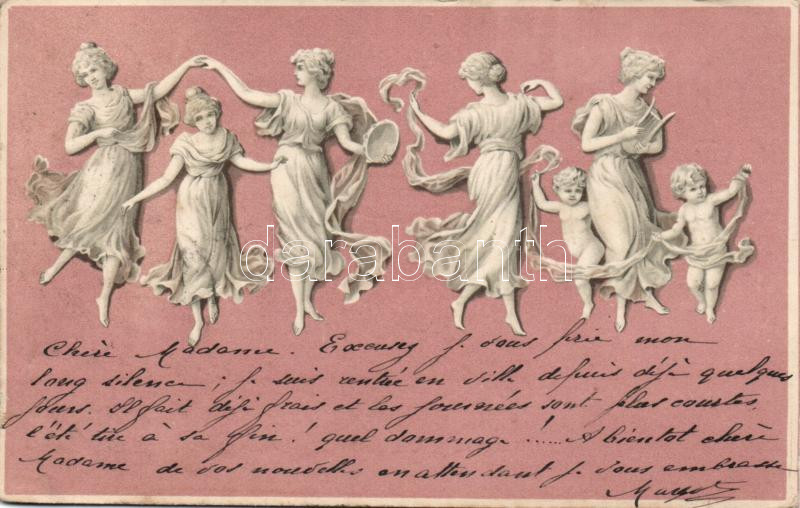 darabanth.com
Chère Madame. Excusez je vous prie mon
long silence; je suis rentrée en ville depuis déjà quelques
jours. Il fait déjà frais et les journées sont plus courtes,
l'été tire à sa fin! quel dommage!..... A bientot chère
Madame de vos nouvelles en attendant je vous embrasse